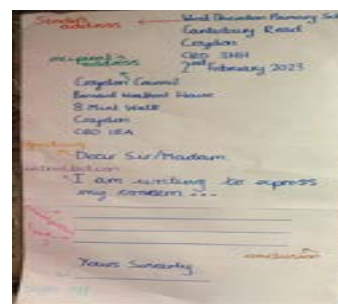 Sender's address
West Thornton Primary Sch
Canterbury Road
Croydon
CR0 3HH
2nd February 2023
recipient's address
Croydon Council
Bernard Weatherill House
8 Mint Walk
Croydon
CR0 1EA
Dear Sir/Madam
introduction
I am writing to express
my concern ...
conclusion
Yours Sincerely
Sign off